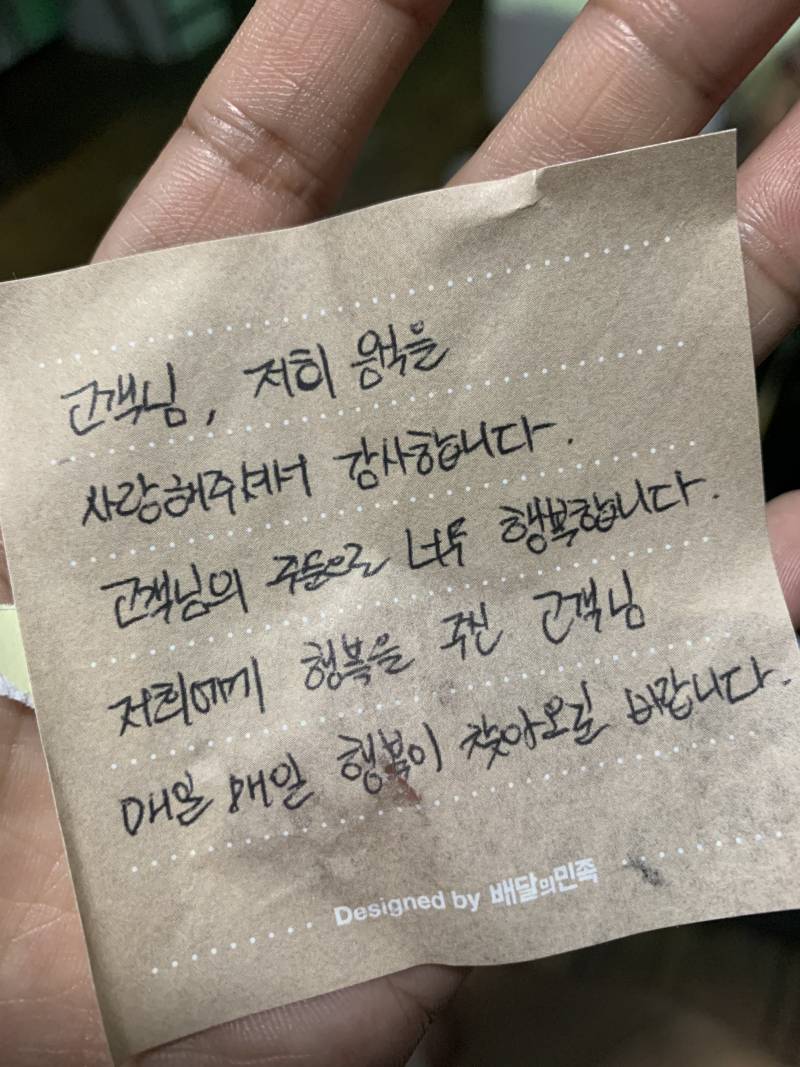 고객님, 저희 음식을
사랑해주셔서 감사합니다.
고객님의 주문으로 너무 행복합니다.
저희에게 행복을 주신 고객님
매일 매일 행복이 찾아오길 바랍니다.
Designed by 배달의민족